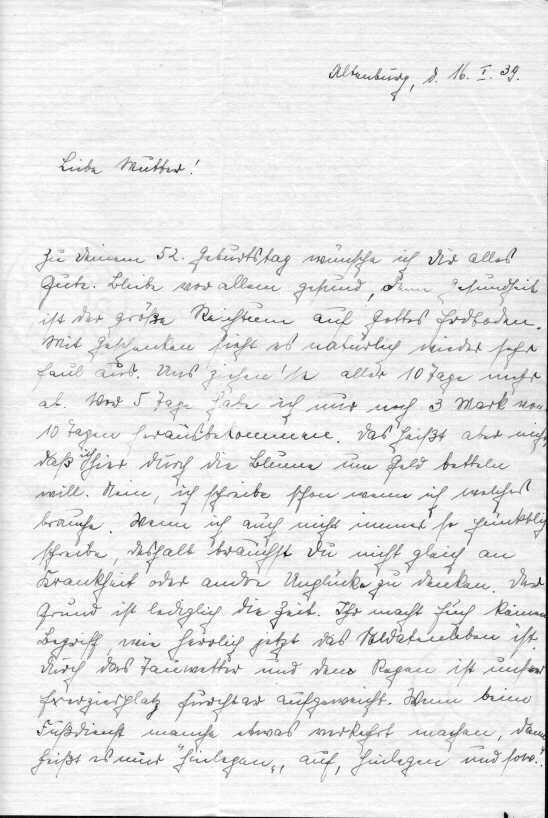 Altenburg, d. 16. I. 39.
Liebe Mutter!
Zu deinem 52. Geburtstag wünsche ich dir alles
Gute. Bleibe vor allem gesund, denn Gesundheit
ist der größte Reichtum auf Gottes Erdboden.
Mit Geschenken sieht es natürlich wieder sehr
faul aus. Uns ziehen's aller 10 Tage mehr
ab. Vor 5 Tage habe ich nur noch 3 Mark von
10 Tagen herausbekommen. Das heißt aber nicht
daß ich hier durch die Blume um Geld betteln
will. Nein, ich schreibe schon wenn ich welches
brauche. Wenn ich auch nicht immer so pünktlich
schreibe, deshalb brauchst Du nicht gleich an
Krankheit oder andre Unglücke zu denken. Der
Grund ist lediglich die Zeit. Ihr macht Euch keinen
Begriff, wie herrlich jetzt das Soldatenleben ist.
Durch das Tauwetter und dem Regen ist unser
Exerzierplatz furchtbar aufgeweicht. Wenn beim
Fußdienst manche etwas verkehrt machen, dann
heißt es nur "Hinlegen", auf, hinlegen und sow."